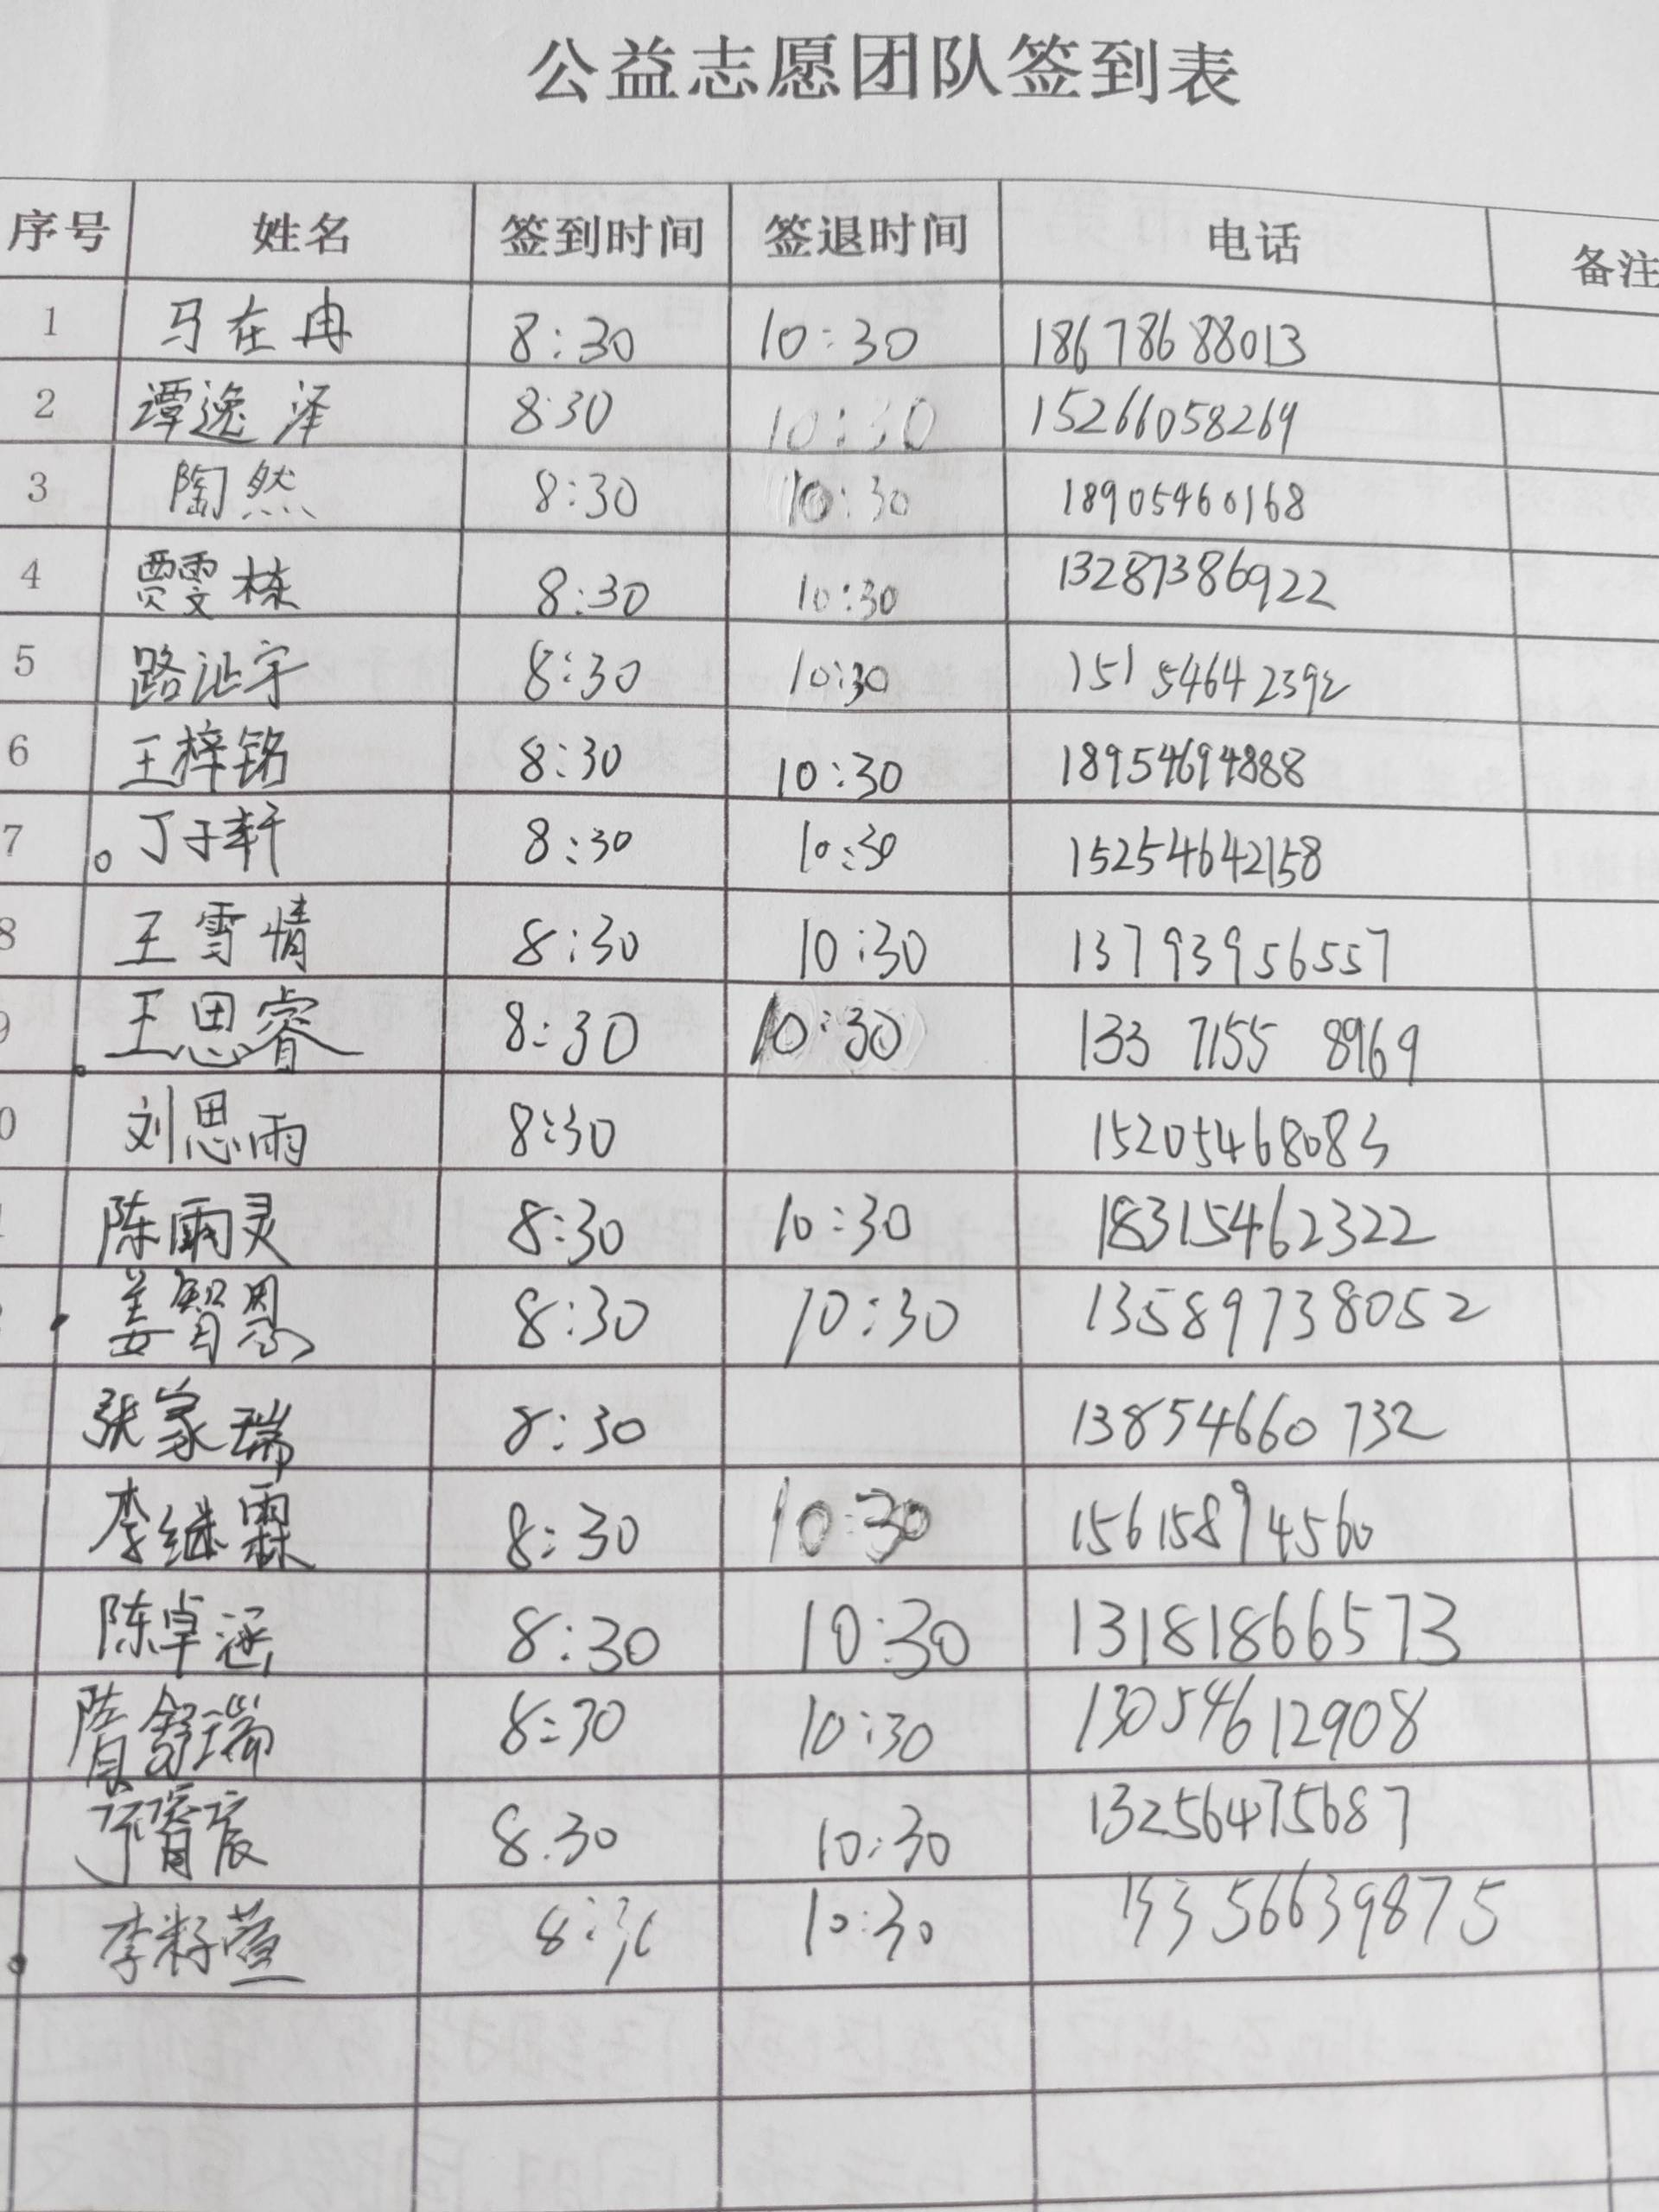 公益志愿团队签到表
序号 姓名 签到时间 签退时间 电话 备注
1 马在冉 8:30 10:30 18678688013
2 谭逸泽 8:30 10:30 15266058269
3 陶然 8:30 10:30 18905460168
4 贾雯栋 8:30 10:30 13287386922
5 路沚宇 8:30 10:30 15154642392
6 王梓铭 8:30 10:30 18954694888
7 丁子轩 8:30 10:30 15254642158
8 王雪情 8:30 10:30 13793956557
9 王思睿 8:30 10:30 133 7155 8969
0 刘思雨 8:30 15205468083
陈雨灵 8:30 10:30 18315462322
姜智恩 8:30 10:30 13589738052
张家瑞 8:30 13854660732
李继霖 8:30 10:30 15615894560
陈卓涵 8:30 10:30 13181866573
隋舒瑞 8:30 10:30 13054612908
8:30 10:30 13256475687
李籽萱 8:30 10:30 13356639875